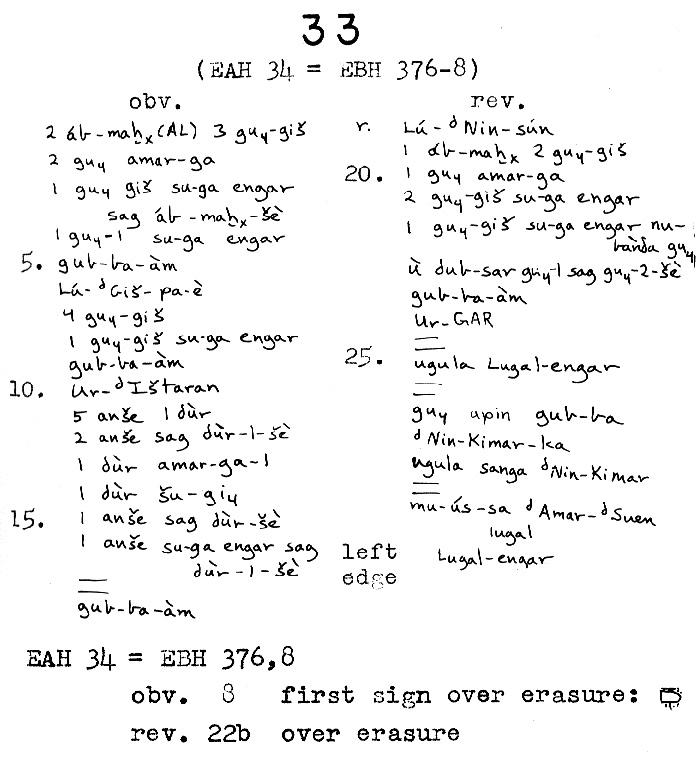 33
(EAH 34 = EBH 376-8)
obv.
2 áb-maḫₓ(AL) 3 gu₄-giš
2 gu₄ amar-ga
1 gu₄ giš su-ga engar
sag áb-maḫₓ-šè
1 gu₄-1 su-ga engar
5. gub-ba-àm
Lú-ᵈGiš-pa-è
4 gu₄-giš
1 gu₄-giš su-ga engar
gub-ba-àm
10. Ur-ᵈIštaran
5 anše 1 dùr
2 anše sag dùr-1-šè
1 dùr amar-ga-1
1 dùr šu-gi₄
15. 1 anše sag dùr-šè
1 anše su-ga engar sag
dùr-1-šè
gub-ba-àm
rev.
r. Lú-ᵈNin-sún
1 áb-maḫₓ 2 gu₄-giš
20. 1 gu₄ amar-ga
2 gu₄-giš su-ga engar
1 gu₄-giš su-ga engar nu-
bànda gu₄
ù dub-sar gu₄-1 sag gu₄-2-šè
gub-ba-àm
Ur-GAR
25. ugula Lugal-engar
gu₄ apin gub-ba
ᵈNin-Kimar-ka
ugula sanga ᵈNin-Kimar
mu-ús-sa ᵈAmar-ᵈSuen
lugal
left edge
Lugal-engar
EAH 34 = EBH 376,8
obv. 8 first sign over erasure:
rev. 22b over erasure